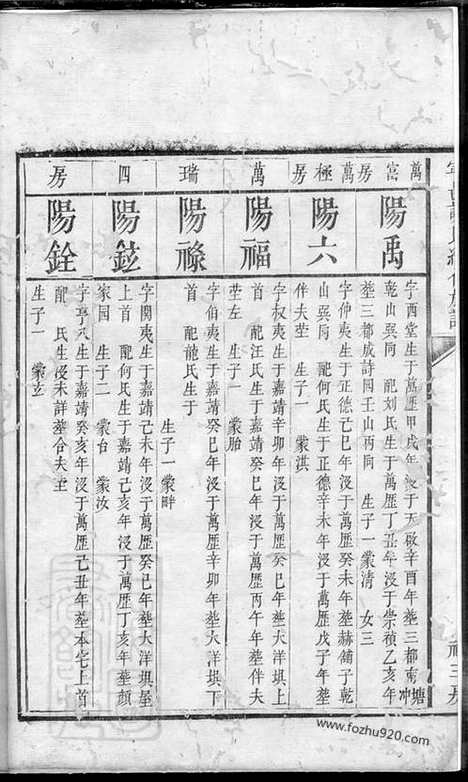 萬富房
陽禹
字西堂生于萬歷甲戌年歿于天啟辛酉年塟三都南塘冲
乾山巽向 配刘氏生于萬歷丁丑年歿于崇禎乙亥年
塟三都成詩园壬山丙向 生子一 蒙清 女三
萬極房
陽六
字仲夷生于正德己巳年歿于萬歷癸未年塟赫舖子乾
山巽向 配何氏生于正德辛未年歿于萬歷戊子年塟
伴夫塋 生子一 蒙淇
萬
陽福
字权夷生于嘉靖辛卯年歿于萬歷癸巳年塟大洋垻上
首 配汪氏生于嘉靖癸巳年歿于萬歷丙午年塟伴夫
塋左 生子一 蒙胎
瑞
陽祿
字伯夷生于嘉靖癸巳年歿于萬歷辛卯年塟大洋垻下
首 配龍氏生于 生子一 蒙畔
四
陽鉉
字閔夷生于嘉靖己未年歿于萬歷癸巳年塟大洋垻屋
上首 配何氏生于嘉靖己亥年歿于萬歷丁亥年塟顔
家园 生子二 蒙台 蒙汝
房
陽銓
字亨夷生于嘉靖癸亥年歿于萬歷己丑年塟本宅上首
配 氏生歿未詳塟合夫塋
生子一 蒙立
福三房
www.fozhu920.com